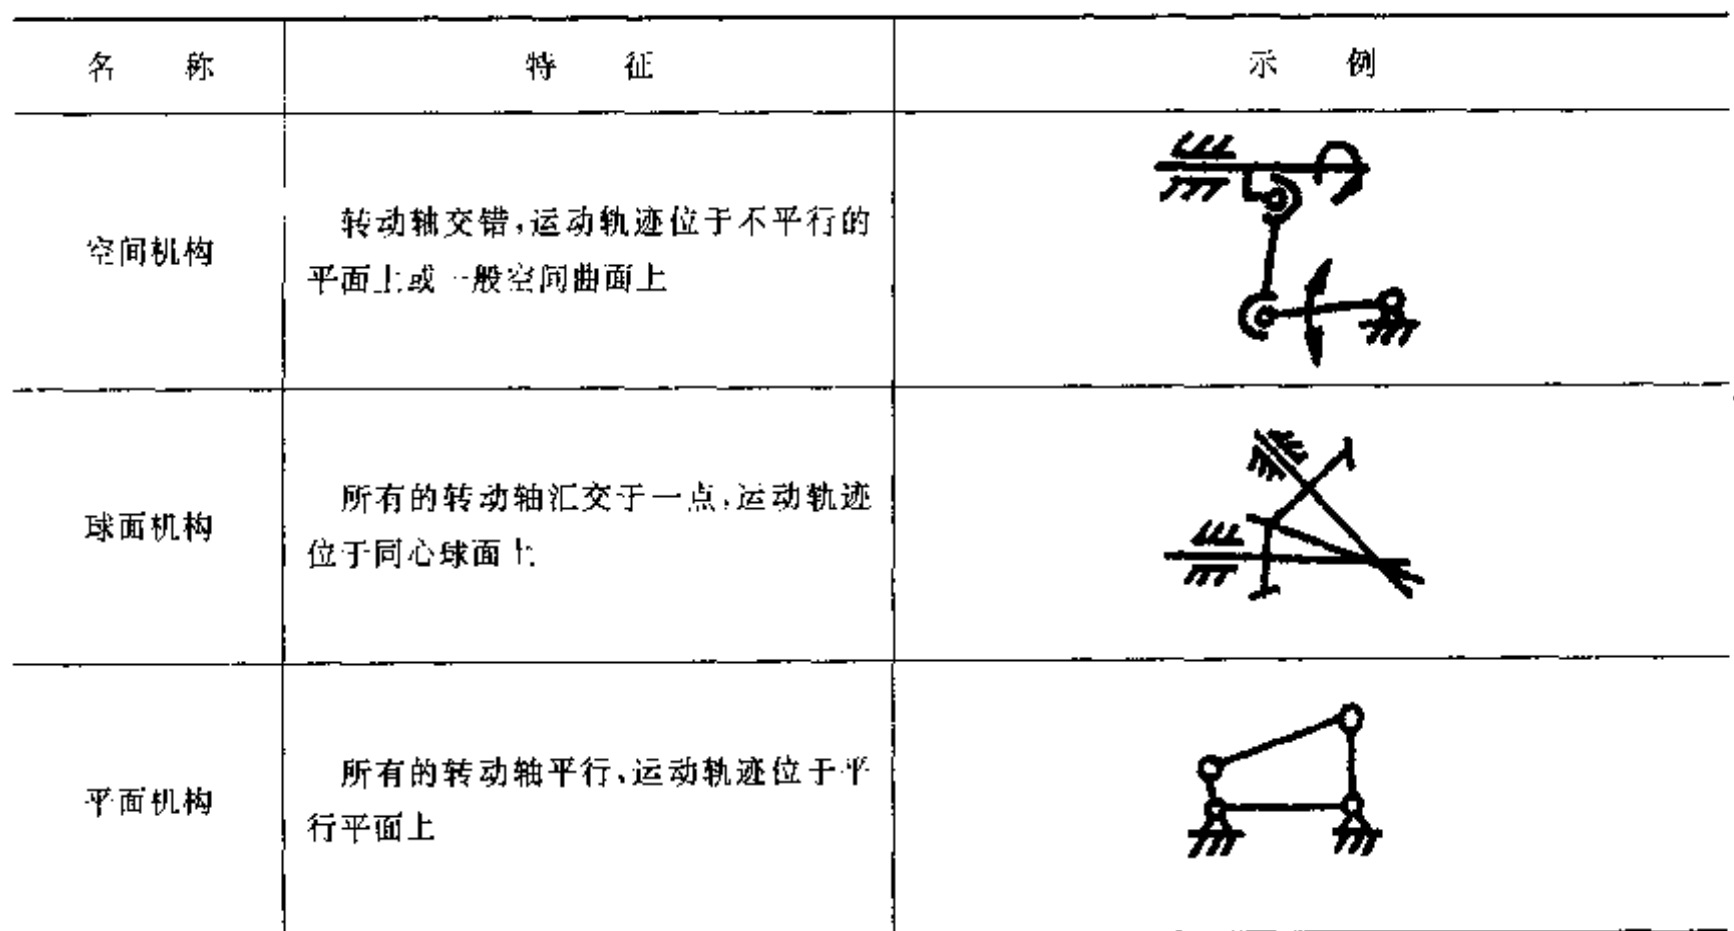 名 称 特 征 示 例
空间机构
转动轴交错,运动轨迹位于不平行的
平面上或一般空间曲面上
球面机构
所有的转动轴汇交于一点,运动轨迹
位于同心球面上
平面机构
所有的转动轴平行、运动轨迹位于平
行平面上